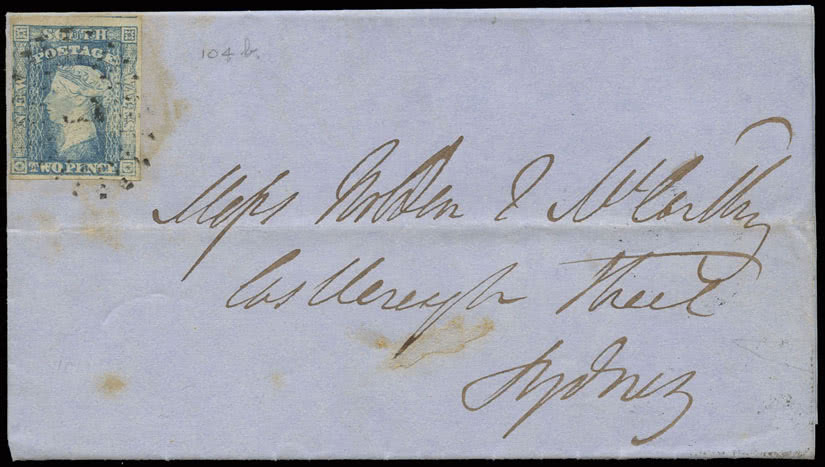 SOUTH
POSTAGE
NEW
WALES
TWO PENCE
104 b.
Messs Norton & McCarthy
Castlereagh Street
Sydney